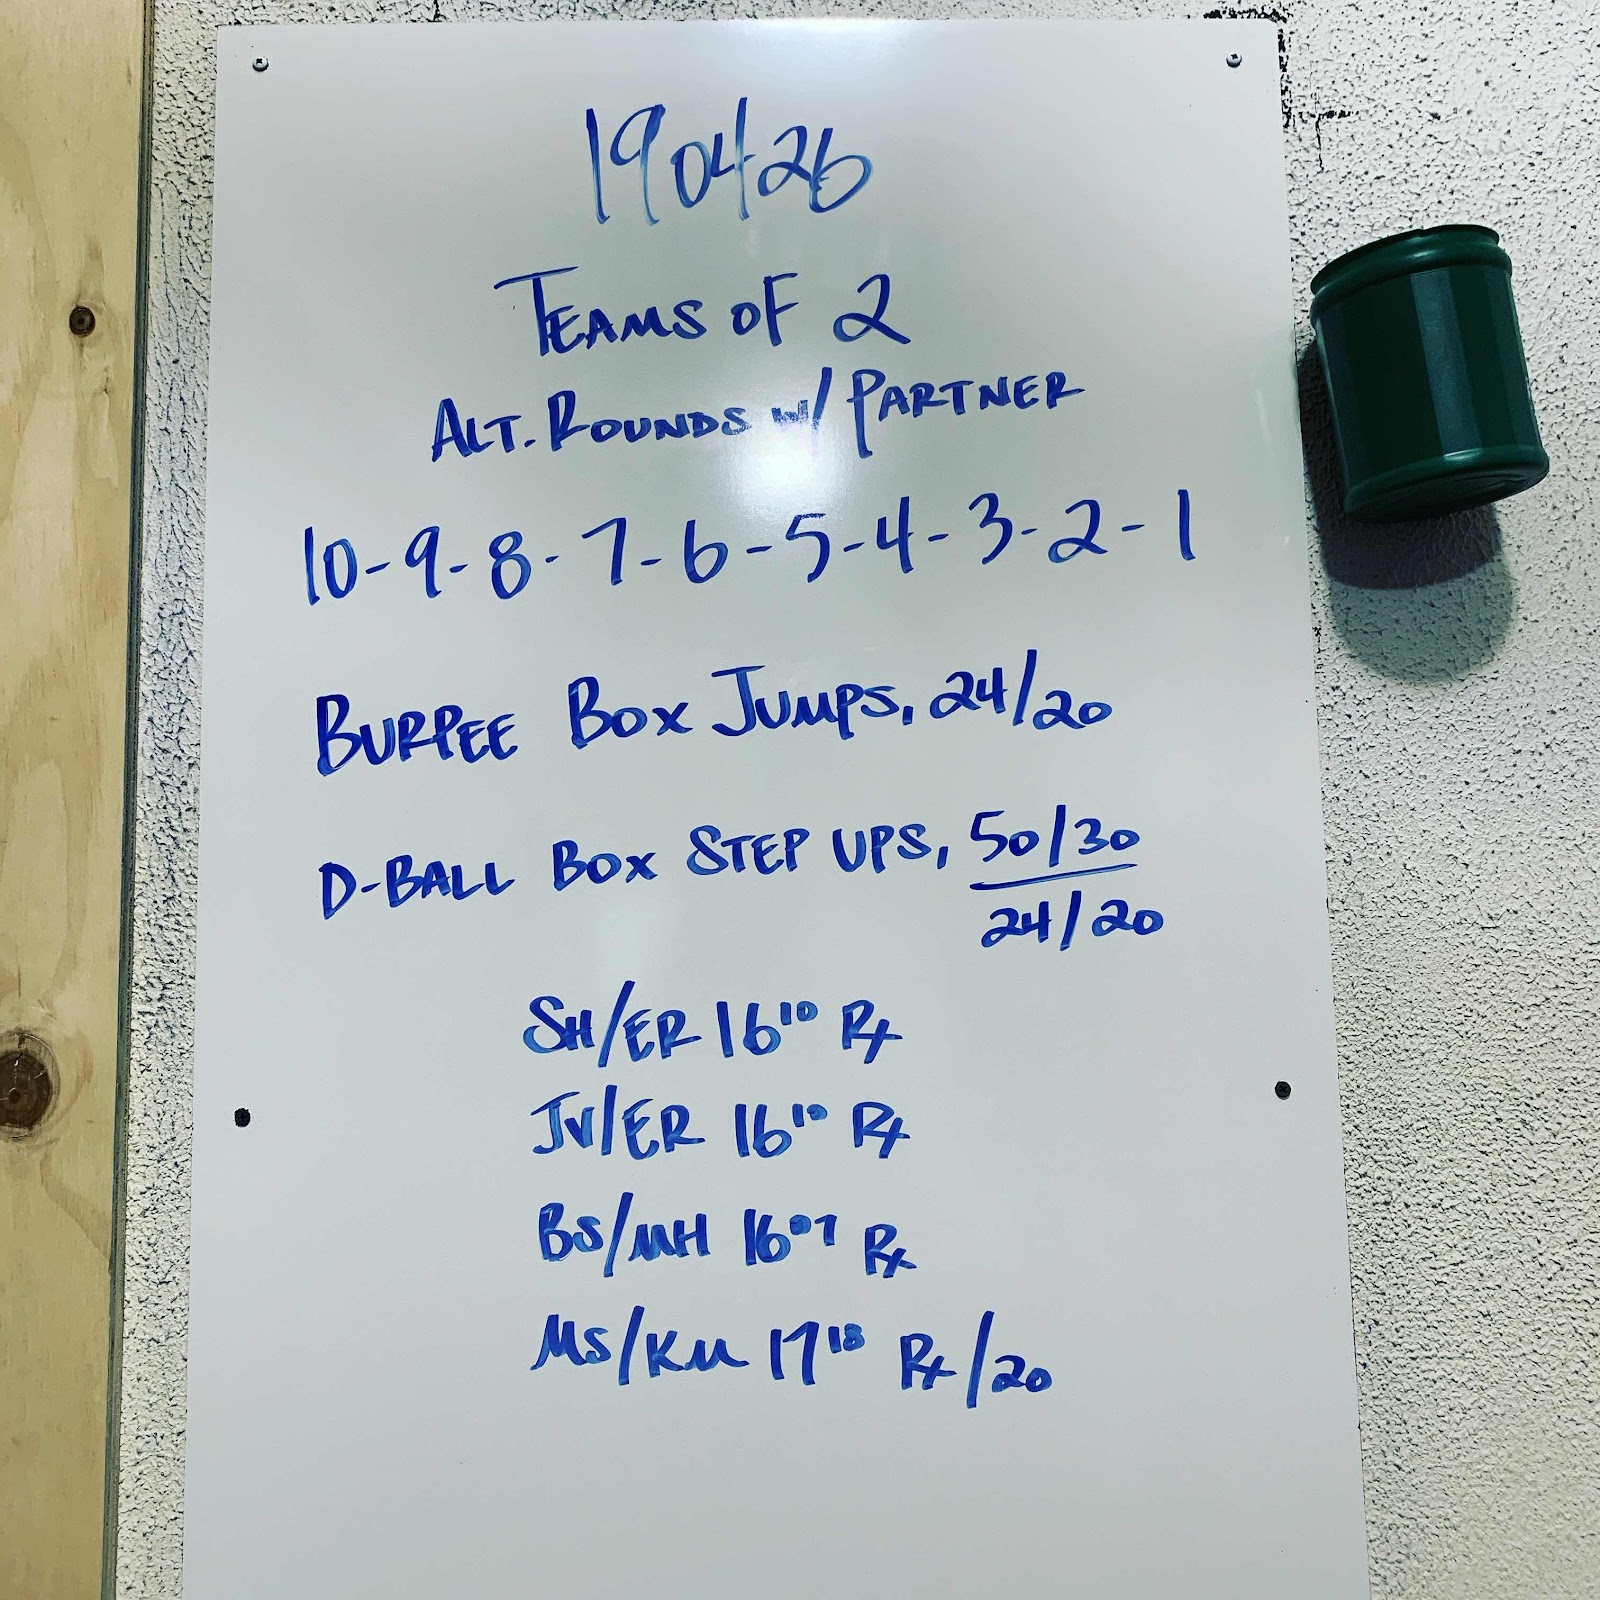 190426
TEAMS OF 2
ALT. ROUNDS W/ PARTNER
10-9-8-7-6-5-4-3-2-1
BURPEE BOX JUMPS, 24/20
D-BALL BOX STEP UPS, 50/30
24/20
SH/ER 16¹⁰ Rx
JV/ER 16¹⁰ Rx
BS/MH 16⁰⁷ Rx
MS/KM 17¹⁸ Rx/20